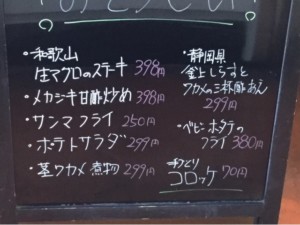 ・和歌山
生マグロのステーキ 398円
・メカジキ甘酢炒め 398円
・サンマフライ 250円
・ポテトサラダ 299円
・茎ワカメ煮物 299円
・静岡県
釜上しらすと
ワカメの三杯酢あえ
299円
・ベビーホタテの
フライ 380円
コロッケ 70円